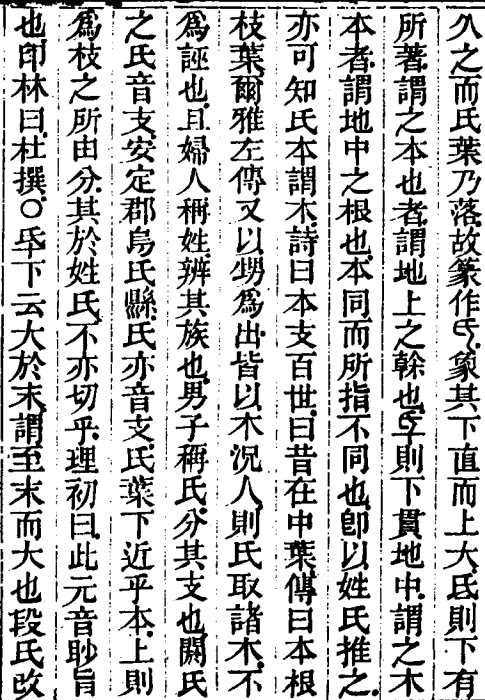 久之而氏葉乃落故篆作氏象其下直而上大氐則下有
所著謂之本也者謂地上之榦也𠂹則下貫地中謂之木
本者謂地中之根也本同而所指不同也卽以姓氏推之
亦可知氏本謂木詩曰本支百世曰昔在中葉傳曰本根
枝葉爾雅左傳又以甥爲出皆以木況人則氏取諸木不
爲誣也且婦人稱姓辨其族也男子稱氏分其支也閼氏
之氏音支安定郡烏氏縣氏亦音支氏葉下近乎本上則
爲枝之所由分其於姓氏不亦切乎理初曰此元音眇旨
也印林曰杜撰○氒下云大於末謂至末而大也段氏改